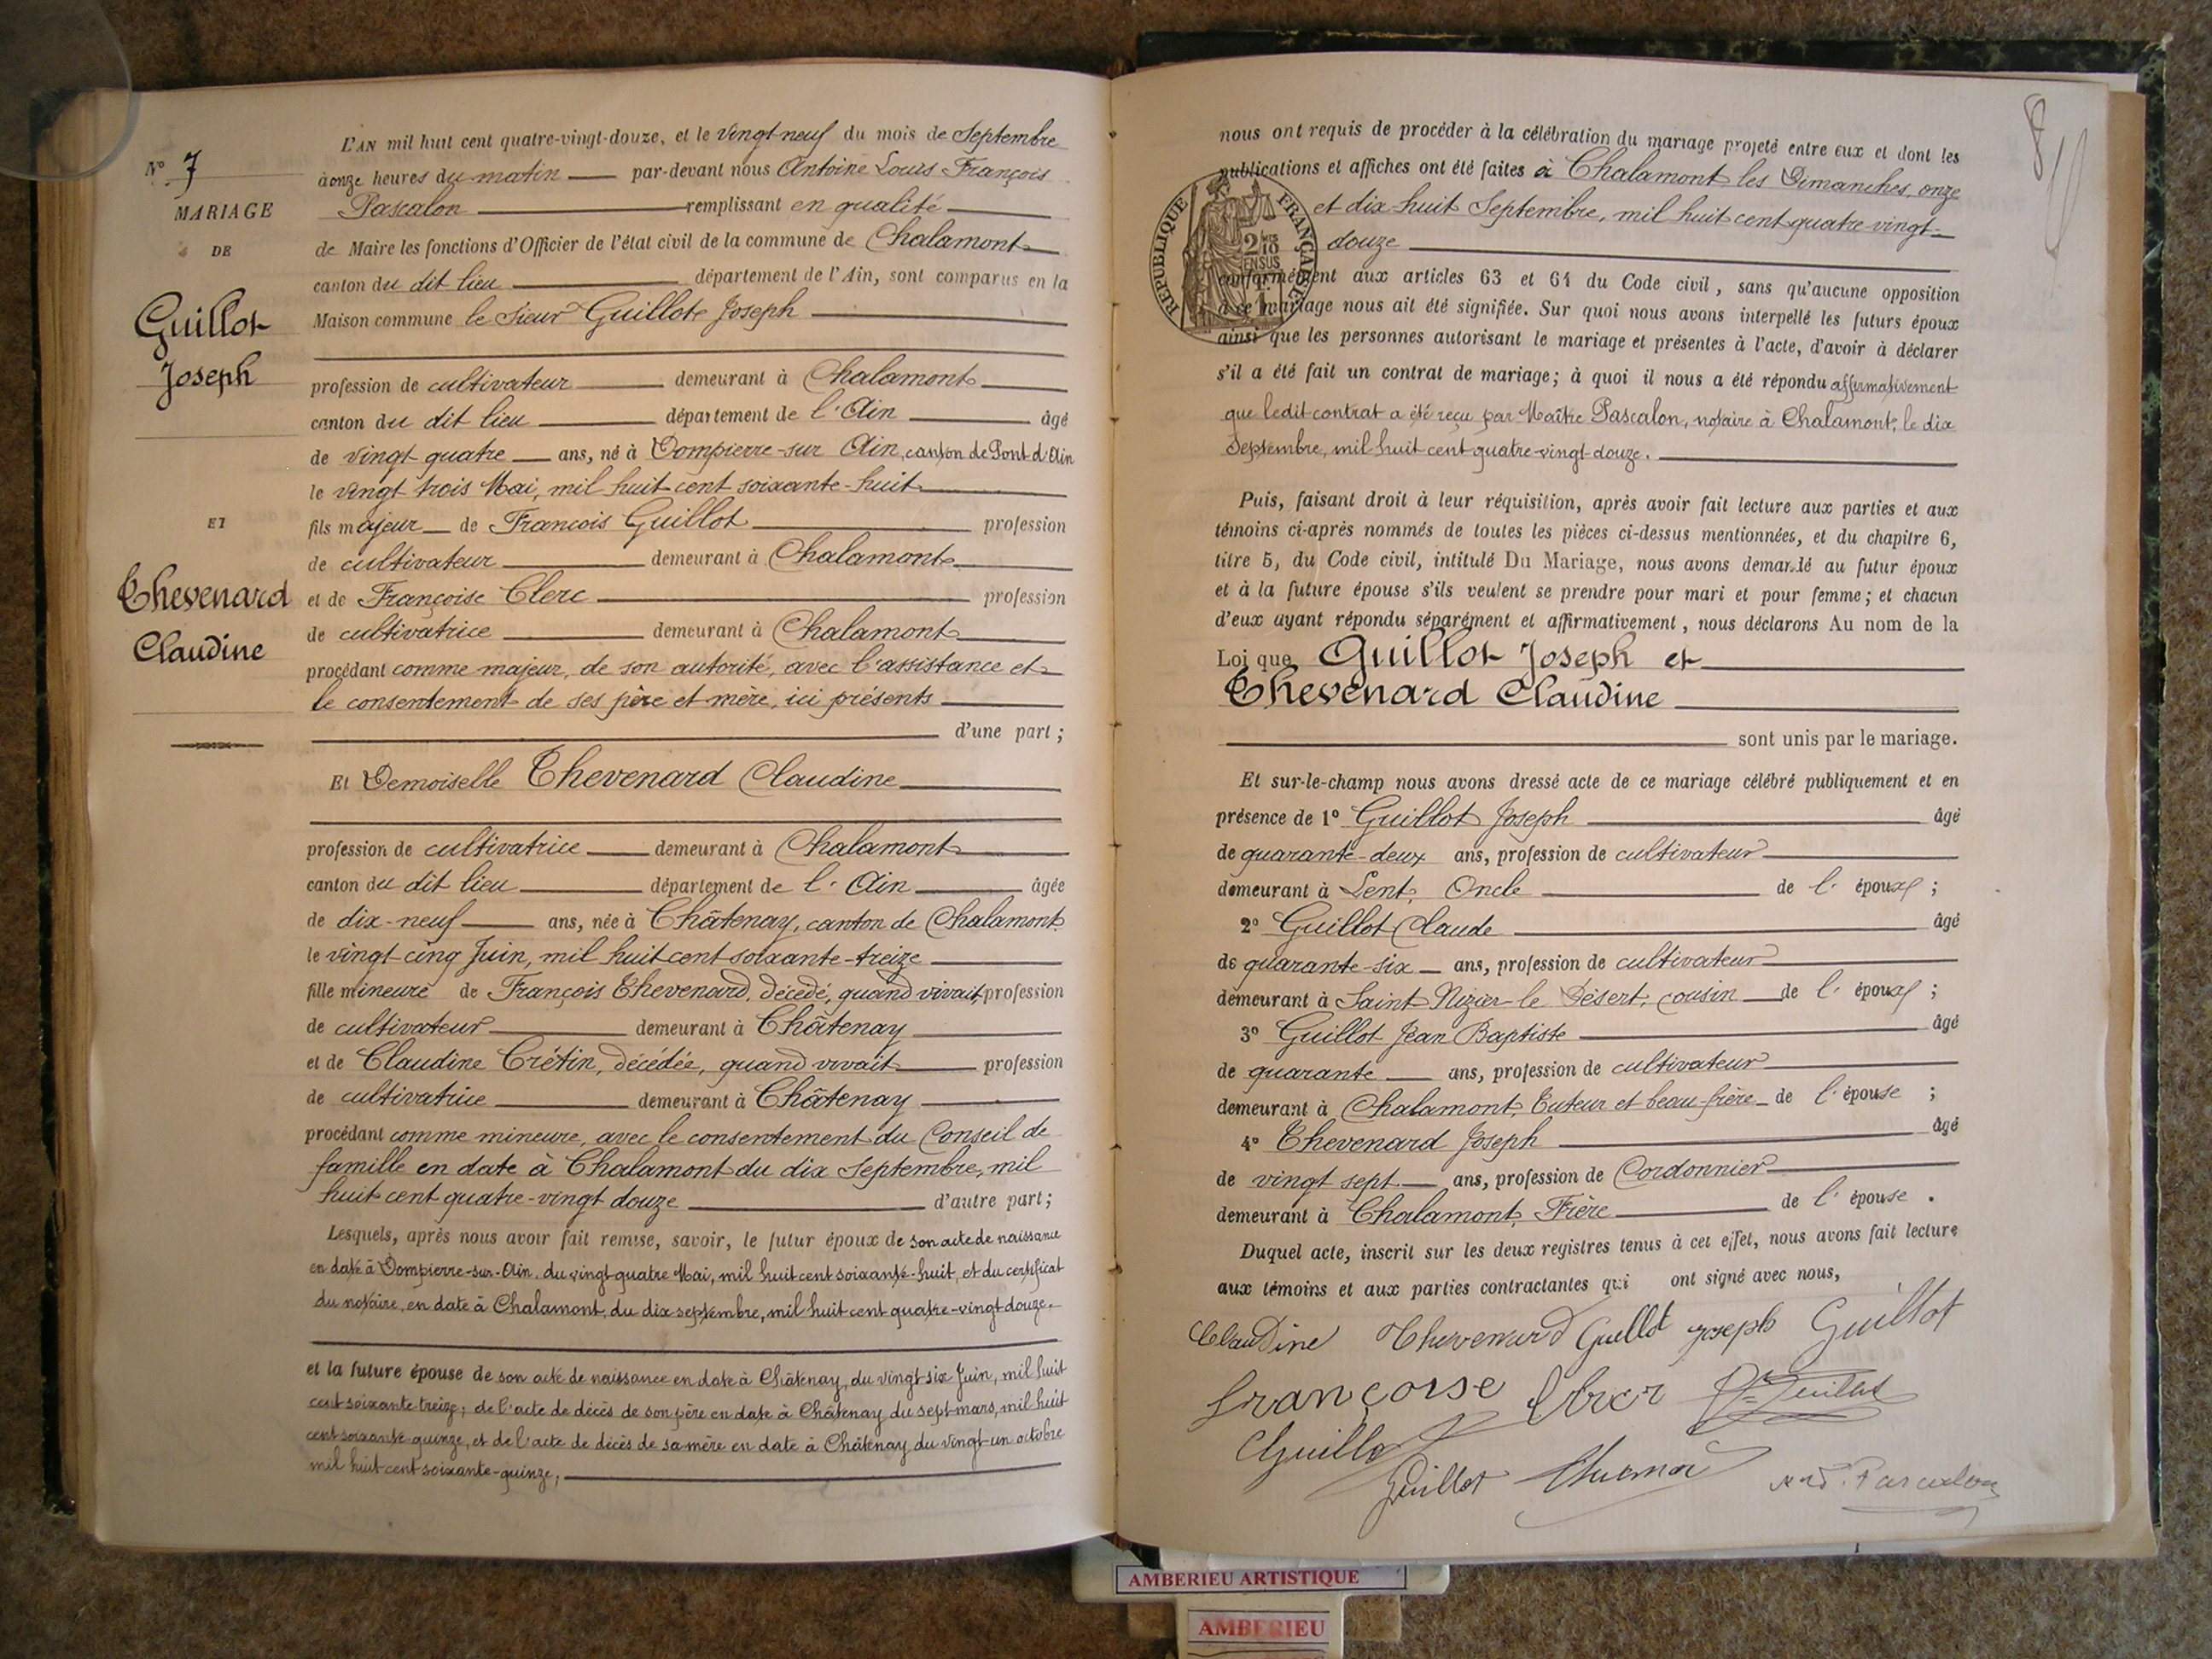 L'AN mil huit cent quatre-vingt-douze, et le vingt-neuf du mois de Septembre
à onze heures du matin par-devant nous Antoine Louis François
Pascalon remplissant en qualité
de Maire les fonctions d'Officier de l'état civil de la commune de Chalamont
canton du dit lieu département de l'Ain, sont comparus en la
Maison commune le sieur Guillot Joseph
profession de cultivateur demeurant à Chalamont
canton du dit lieu département de l'Ain âgé
de vingt quatre ans, né à Dompierre-sur Ain, canton de Pont d'Ain
le vingt trois Mai, mil huit cent soixante-huit
fils majeur de Francois Guillot profession
de cultivateur demeurant à Chalamont
et de Françoise Clerc profession
de cultivatrice demeurant à Chalamont
procédant comme majeur, de son autorité, avec l'assistance et
le consentement de ses père et mère, ici présents
d'une part ;
Et Demoiselle Thevenard Claudine
profession de cultivatrice demeurant à Chalamont
canton du dit lieu département de l'Ain âgée
de dix-neuf ans, née à Châtenay, canton de Chalamont
le vingt-cinq Juin, mil huit cent soixante-treize
fille mineure de François Thevenard, décédé, quand vivait, profession
de cultivateur demeurant à Châtenay
et de Claudine Crétin, décédée, quand vivait profession
de cultivatrice demeurant à Châtenay
procédant comme mineure, avec le consentement du Conseil de
famille en date à Chalamont du dix Septembre, mil
huit cent quatre-vingt douze d'autre part ;
Lesquels, après nous avoir fait remise, savoir, le futur époux de son acte de naissance
en date à Dompierre-sur-Ain, du vingt-quatre Mai, mil huit cent soixante-huit, et du certificat
du notaire, en date à Chalamont, du dix septembre, mil huit cent quatre-vingt douze.
et la future épouse de son acte de naissance en date à Châtenay, du vingt-six Juin, mil huit
cent soixante treize; de l'acte de décès de son père en date à Châtenay du sept mars, mil huit
cent soixante-quinze, et de l'acte de décès de sa mère en date à Châtenay du vingt-un octobre
mil huit cent soixante-quinze;
N° 7
MARIAGE
DE
Guillot
Joseph
ET
Thevenard
Claudine
8
nous ont requis de procéder à la célébration du mariage projeté entre eux et dont les
publications et affiches ont été faites à Chalamont les Dimanches, onze
et dix-huit Septembre, mil huit cent quatre vingt-
douze
conformément aux articles 63 et 64 du Code civil, sans qu'aucune opposition
à ce mariage nous ait été signifiée. Sur quoi nous avons interpellé les futurs époux
ainsi que les personnes autorisant le mariage et présentes à l'acte, d'avoir à déclarer
s'il a été fait un contrat de mariage; à quoi il nous a été répondu affirmativement
que ledit contrat a été reçu par Maître Pascalon, notaire à Chalamont, le dix
Septembre, mil huit cent quatre-vingt-douze.
REPUBLIQUE FRANÇAISE
2/10 EN SUS
Puis, faisant droit à leur réquisition, après avoir fait lecture aux parties et aux
témoins ci-après nommés de toutes les pièces ci-dessus mentionnées, et du chapitre 6,
titre 5, du Code civil, intitulé Du Mariage, nous avons demandé au futur époux
et à la future épouse s'ils veulent se prendre pour mari et pour femme ; et chacun
d'eux ayant répondu séparément et affirmativement, nous déclarons Au nom de la
Loi que Guillot Joseph et
Thevenard Claudine
sont unis par le mariage.
Et sur-le-champ nous avons dressé acte de ce mariage célébré publiquement et en
présence de 1° Guillot Joseph âgé
de quarante-deux ans, profession de cultivateur
demeurant à Lent, Oncle de l'époux ;
2° Guillot Claude âgé
de quarante-six ans, profession de cultivateur
demeurant à Saint Nizier-le Désert, cousin de l'époux ;
3° Guillot Jean Baptiste âgé
de quarante ans, profession de cultivateur
demeurant à Chalamont, Tuteur et beau-frère de l'épouse ;
4° Thevenard Joseph âgé
de vingt sept ans, profession de Cordonnier
demeurant à Chalamont, Frère de l'épouse .
Duquel acte, inscrit sur les deux registres tenus à cet effet, nous avons fait lecture
aux témoins et aux parties contractantes qui ont signé avec nous,
Claudine Thevenard Guillot joseph Guillot
françoise Clerc Guillot
Guillot
Guillot
Pascalon
AMBERIEU ARTISTIQUE
AMBERIEU